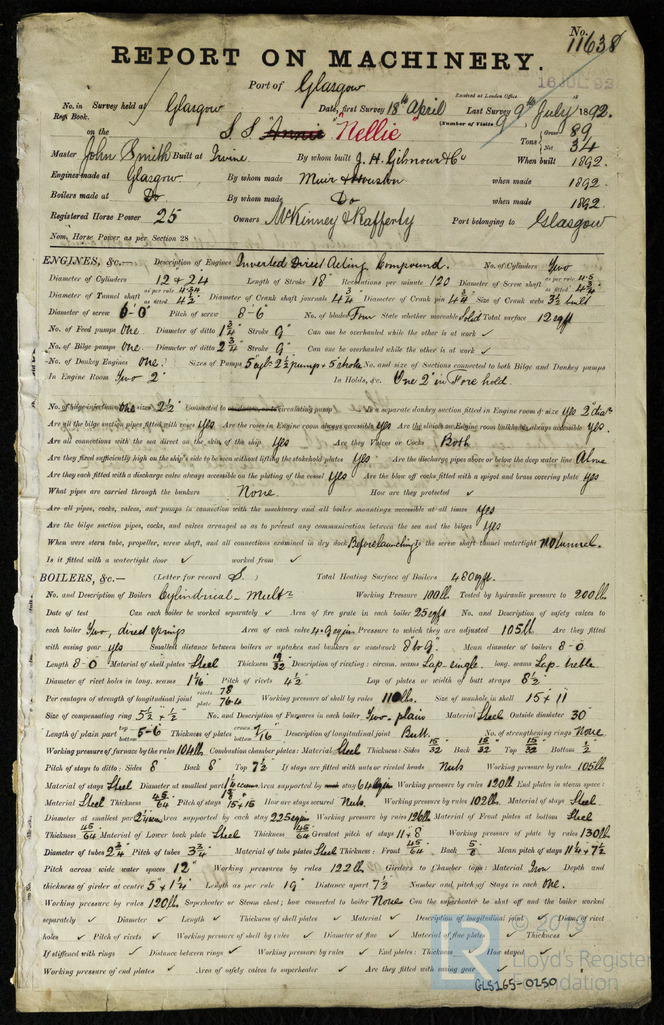 No. 11638
REPORT ON MACHINERY.
Port of Glasgow
Received at London Office 16 JUL 92
No. in Survey held at Glasgow Date, first Survey 18th April Last Survey 9th July 1892.
Reg. Book. (Number of Visits 9)
on the S S Annie "Nellie" Tons Gross 89 Net 34
Master John Smith Built at Irvine. By whom built J. H. Gilmour & Co When built 1892.
Engines made at Glasgow By whom made Muir & Houston when made 1892.
Boilers made at Do By whom made Do when made 1892
Registered Horse Power 25 Owners McKinney & Rafferty Port belonging to Glasgow
Nom. Horse Power as per Section 28
ENGINES, &c.— Description of Engines Inverted Direct Acting Compound. No. of Cylinders Two
Diameter of Cylinders 12 & 24 Length of Stroke 18" Revolutions per minute 120 Diameter of Screw shaft as per rule 4.5 as fitted 4 3/4
Diameter of Tunnel shaft as per rule as fitted 4 1/2 Diameter of Crank shaft journals 4 3/4 Diameter of Crank pin 4 3/4 Size of Crank webs 3 1/2 built
Diameter of screw 6-0" Pitch of screw 8-6 No. of blades Four State whether moveable Solid Total surface 12 sqft
No. of Feed pumps One Diameter of ditto 1 3/4 Stroke 9" Can one be overhauled while the other is at work ✓
No. of Bilge pumps One Diameter of ditto 2 3/4 Stroke 9" Can one be overhauled while the other is at work ✓
No. of Donkey Engines One. Sizes of Pumps 5" cyl. 2 1/2 pump & 5" stroke No. and size of Suctions connected to both Bilge and Donkey pumps
In Engine Room Two 2" In Holds, &c. One 2" in Fore hold.
No. of bilge injections One sizes 2 1/2" Connected to circulating pump Is a separate donkey suction fitted in Engine room & size yes 2" dia
Are all the bilge suction pipes fitted with roses Yes Are the roses in Engine room always accessible Yes Are the sluices on Engine room bulkheads always accessible yes.
Are all connections with the sea direct on the skin of the ship Yes Are they Valves or Cocks Both
Are they fixed sufficiently high on the ship's side to be seen without lifting the stokehold plates Yes Are the discharge pipes above or below the deep water line Above
Are they each fitted with a discharge valve always accessible on the plating of the vessel Yes Are the blow off cocks fitted with a spigot and brass covering plate Yes
What pipes are carried through the bunkers None. How are they protected ✓
Are all pipes, cocks, valves, and pumps in connection with the machinery and all boiler mountings accessible at all times Yes
Are the bilge suction pipes, cocks, and valves arranged so as to prevent any communication between the sea and the bilges Yes
When were stern tube, propeller, screw shaft, and all connections examined in dry dock Before launching Is the screw shaft tunnel watertight No tunnel.
Is it fitted with a watertight door ✓ worked from ✓
BOILERS, &c.— (Letter for record S.) Total Heating Surface of Boilers 480 sqft.
No. and Description of Boilers Cylindrical - Mult Working Pressure 100 lb Tested by hydraulic pressure to 200 lb
Date of test Can each boiler be worked separately ✓ Area of fire grate in each boiler 25 sqft No. and Description of safety valves to
each boiler Two, direct springs Area of each valve 4.9 sqin Pressure to which they are adjusted 105 lb Are they fitted
with easing gear yes Smallest distance between boilers or uptakes and bunkers or woodwork 8" to 9" Mean diameter of boilers 8-0
Length 8-0 Material of shell plates Steel Thickness 19/32 Description of riveting: circum. seams Lap single long. seams Lap treble
Diameter of rivet holes in long. seams 1 1/16 Pitch of rivets 4 1/2 Lap of plates or width of butt straps 8 1/2
Per centages of strength of longitudinal joint rivets 78 plate 76.4 Working pressure of shell by rules 110 lb Size of manhole in shell 15 x 11
Size of compensating ring 5 1/2 x 1/2 No. and Description of Furnaces in each boiler Two - plain Material Steel Outside diameter 30"
Length of plain part top bottom 5-6 Thickness of plates crown bottom 7/16 Description of longitudinal joint Butt. No. of strengthening rings None
Working pressure of furnace by the rules 104 lb Combustion chamber plates: Material Steel Thickness: Sides 15/32 Back 15/32 Top 15/32 Bottom 1/2
Pitch of stays to ditto: Sides 8" Back 8" Top 7 1/2 If stays are fitted with nuts or riveted heads Nuts Working pressure by rules 105 lb
Material of stays Steel Diameter at smallest part Area supported by each stay 64 sqin Working pressure by rules 120 lb End plates in steam space:
Material Steel Thickness 45/64 Pitch of stays 15 x 15 How are stays secured Nuts, Working pressure by rules 102 lb. Material of stays Steel.
Diameter at smallest part Area supported by each stay 225 sqin Working pressure by rules 126 lb Material of Front plates at bottom Steel
Thickness 45/64 Material of Lower back plate Steel Thickness 45/64 Greatest pitch of stays 11 x 8 Working pressure of plate by rules 130 lb
Diameter of tubes 2 3/4 Pitch of tubes 3 3/4 Material of tube plates Steel Thickness: Front 45/64 Back 5/8 Mean pitch of stays 11 1/4 x 7 1/2
Pitch across wide water spaces 12" Working pressures by rules 122 lb Girders to Chamber tops: Material Iron Depth and
thickness of girder at centre 5 x 1 1/4" Length as per rule 19" Distance apart 7 1/2 Number and pitch of Stays in each One.
Working pressure by rules 120 lb Superheater or Steam chest; how connected to boiler None Can the superheater be shut off and the boiler worked
separately ✓ Diameter ✓ Length ✓ Thickness of shell plates ✓ Material ✓ Description of longitudinal joint ✓ Diam. of rivet
holes ✓ Pitch of rivets ✓ Working pressure of shell by rules ✓ Diameter of flue ✓ Material of flue plates ✓ Thickness ✓
If stiffened with rings ✓ Distance between rings ✓ Working pressure by rules ✓ End plates: Thickness ✓ How stayed
Working pressure of end plates ✓ Area of safety valves to superheater ✓ Are they fitted with easing gear ✓
© 2019
Lloyd's Register
Foundation
GLS165-0250